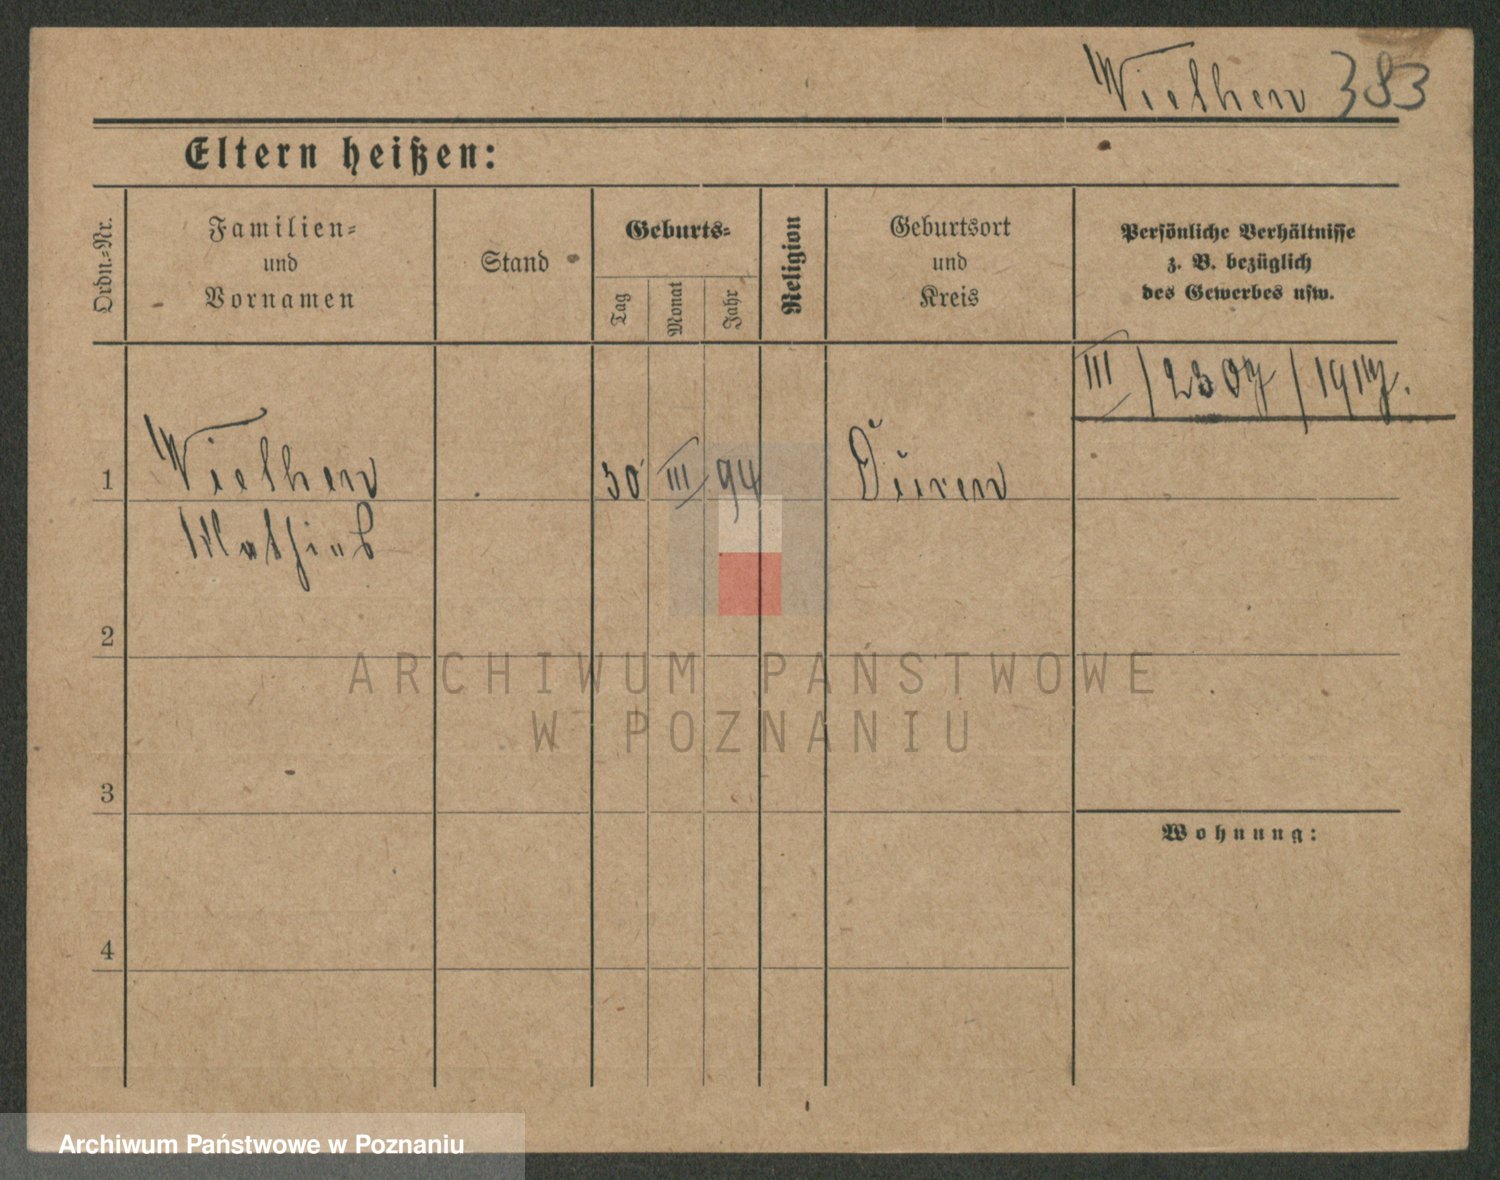 Wielhen 383
Eltern heißen:
Ordn.-Nr.
Familien-
und
Vornamen
Stand
Geburts-
Tag
Monat
Jahr
Religion
Geburtsort
und
Kreis
Persönliche Verhältnisse
z. B. bezüglich
des Gewerbes usw.
III/2307/1917.
1 Wielhen 30 III 94 Düren
Mathias
2
3
4
Wohnung:
ARCHIWUM PAŃSTWOWE
W POZNANIU
Archiwum Państwowe w Poznaniu